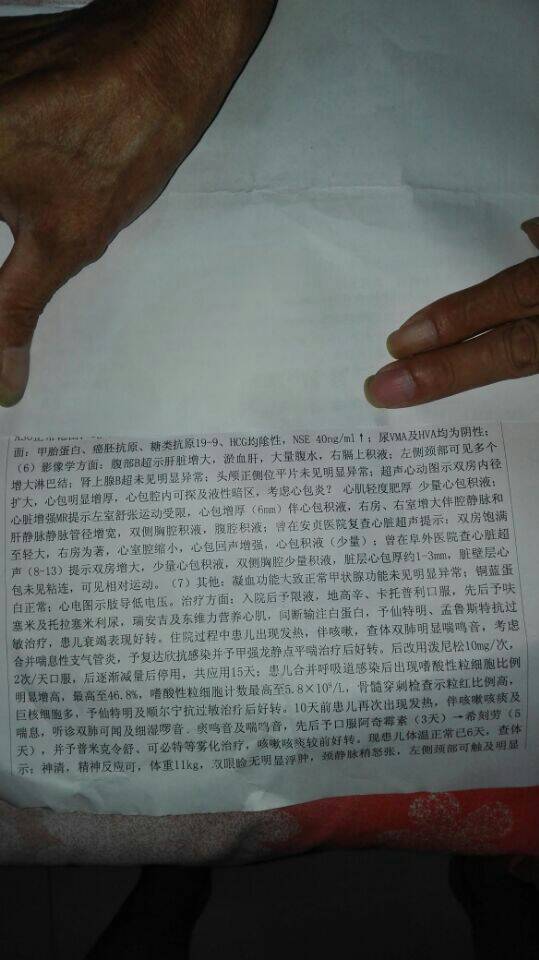 面：甲胎蛋白、癌胚抗原、糖类抗原19-9、HCG均阴性，NSE 40ng/ml↑；尿VMA及HVA均为阴性；
（6）影像学方面：腹部B超示肝脏增大，淤血肝，大量腹水，右膈上积液；左侧颈部可见多个
增大淋巴结；肾上腺B超未见明显异常；头颅正侧位平片未见明显异常；超声心动图示双房内径
扩大，心包明显增厚，心包腔内可探及液性暗区，考虑心包炎？ 心肌轻度肥厚 少量心包积液；
心脏增强MR提示左室舒张运动受限，心包增厚（6mm）伴心包积液，右房、右室增大伴腔静脉和
肝静脉静脉管径增宽，双侧胸腔积液，腹腔积液；曾在安贞医院复查心脏超声提示： 双房饱满
至轻大，右房为著，心室腔缩小，心包回声增强，心包积液（少量）；曾在阜外医院查心脏超
声（8-13）提示双房增大，少量心包积液，双侧胸腔少量积液，脏层心包厚约1-3mm，脏壁层心
包未见粘连，可见相对运动。（7）其他：凝血功能大致正常甲状腺功能未见明显异常；铜蓝蛋
白正常；心电图示肢导低电压。治疗方面：入院后予限液，地高辛、卡托普利口服，先后予呋
塞米及托拉塞米利尿，瑞安吉及东维力营养心肌，间断输注白蛋白，予仙特明、孟鲁斯特抗过
敏治疗，患儿衰竭表现好转。住院过程中患儿出现发热，伴咳嗽，查体双肺明显喘鸣音，考虑
合并喘息性支气管炎，予复达欣抗感染并予甲强龙静点平喘治疗后好转。后改用泼尼松10mg/次，
2次/天口服，后逐渐减量后停用，共应用15天；患儿合并呼吸道感染后出现嗜酸性粒细胞比例
明显增高，最高至46.8%，嗜酸性粒细胞计数最高至5.8×10⁹/L，骨髓穿刺检查示粒红比例高，
巨核细胞多，予仙特明及顺尔宁抗过敏治疗后好转。10天前患儿再次出现发热，伴咳嗽咳痰及
喘息，听诊双肺可闻及细湿啰音、痰鸣音及喘鸣音，先后予口服阿奇霉素（3天）→希刻劳（5
天），并予普米克令舒、可必特等雾化治疗，咳嗽咳痰较前好转。现患儿体温正常已6天，查体
示：神清，精神反应可，体重11kg，双眼睑无明显浮肿，颈静脉稍怒张，左侧颈部可触及明显